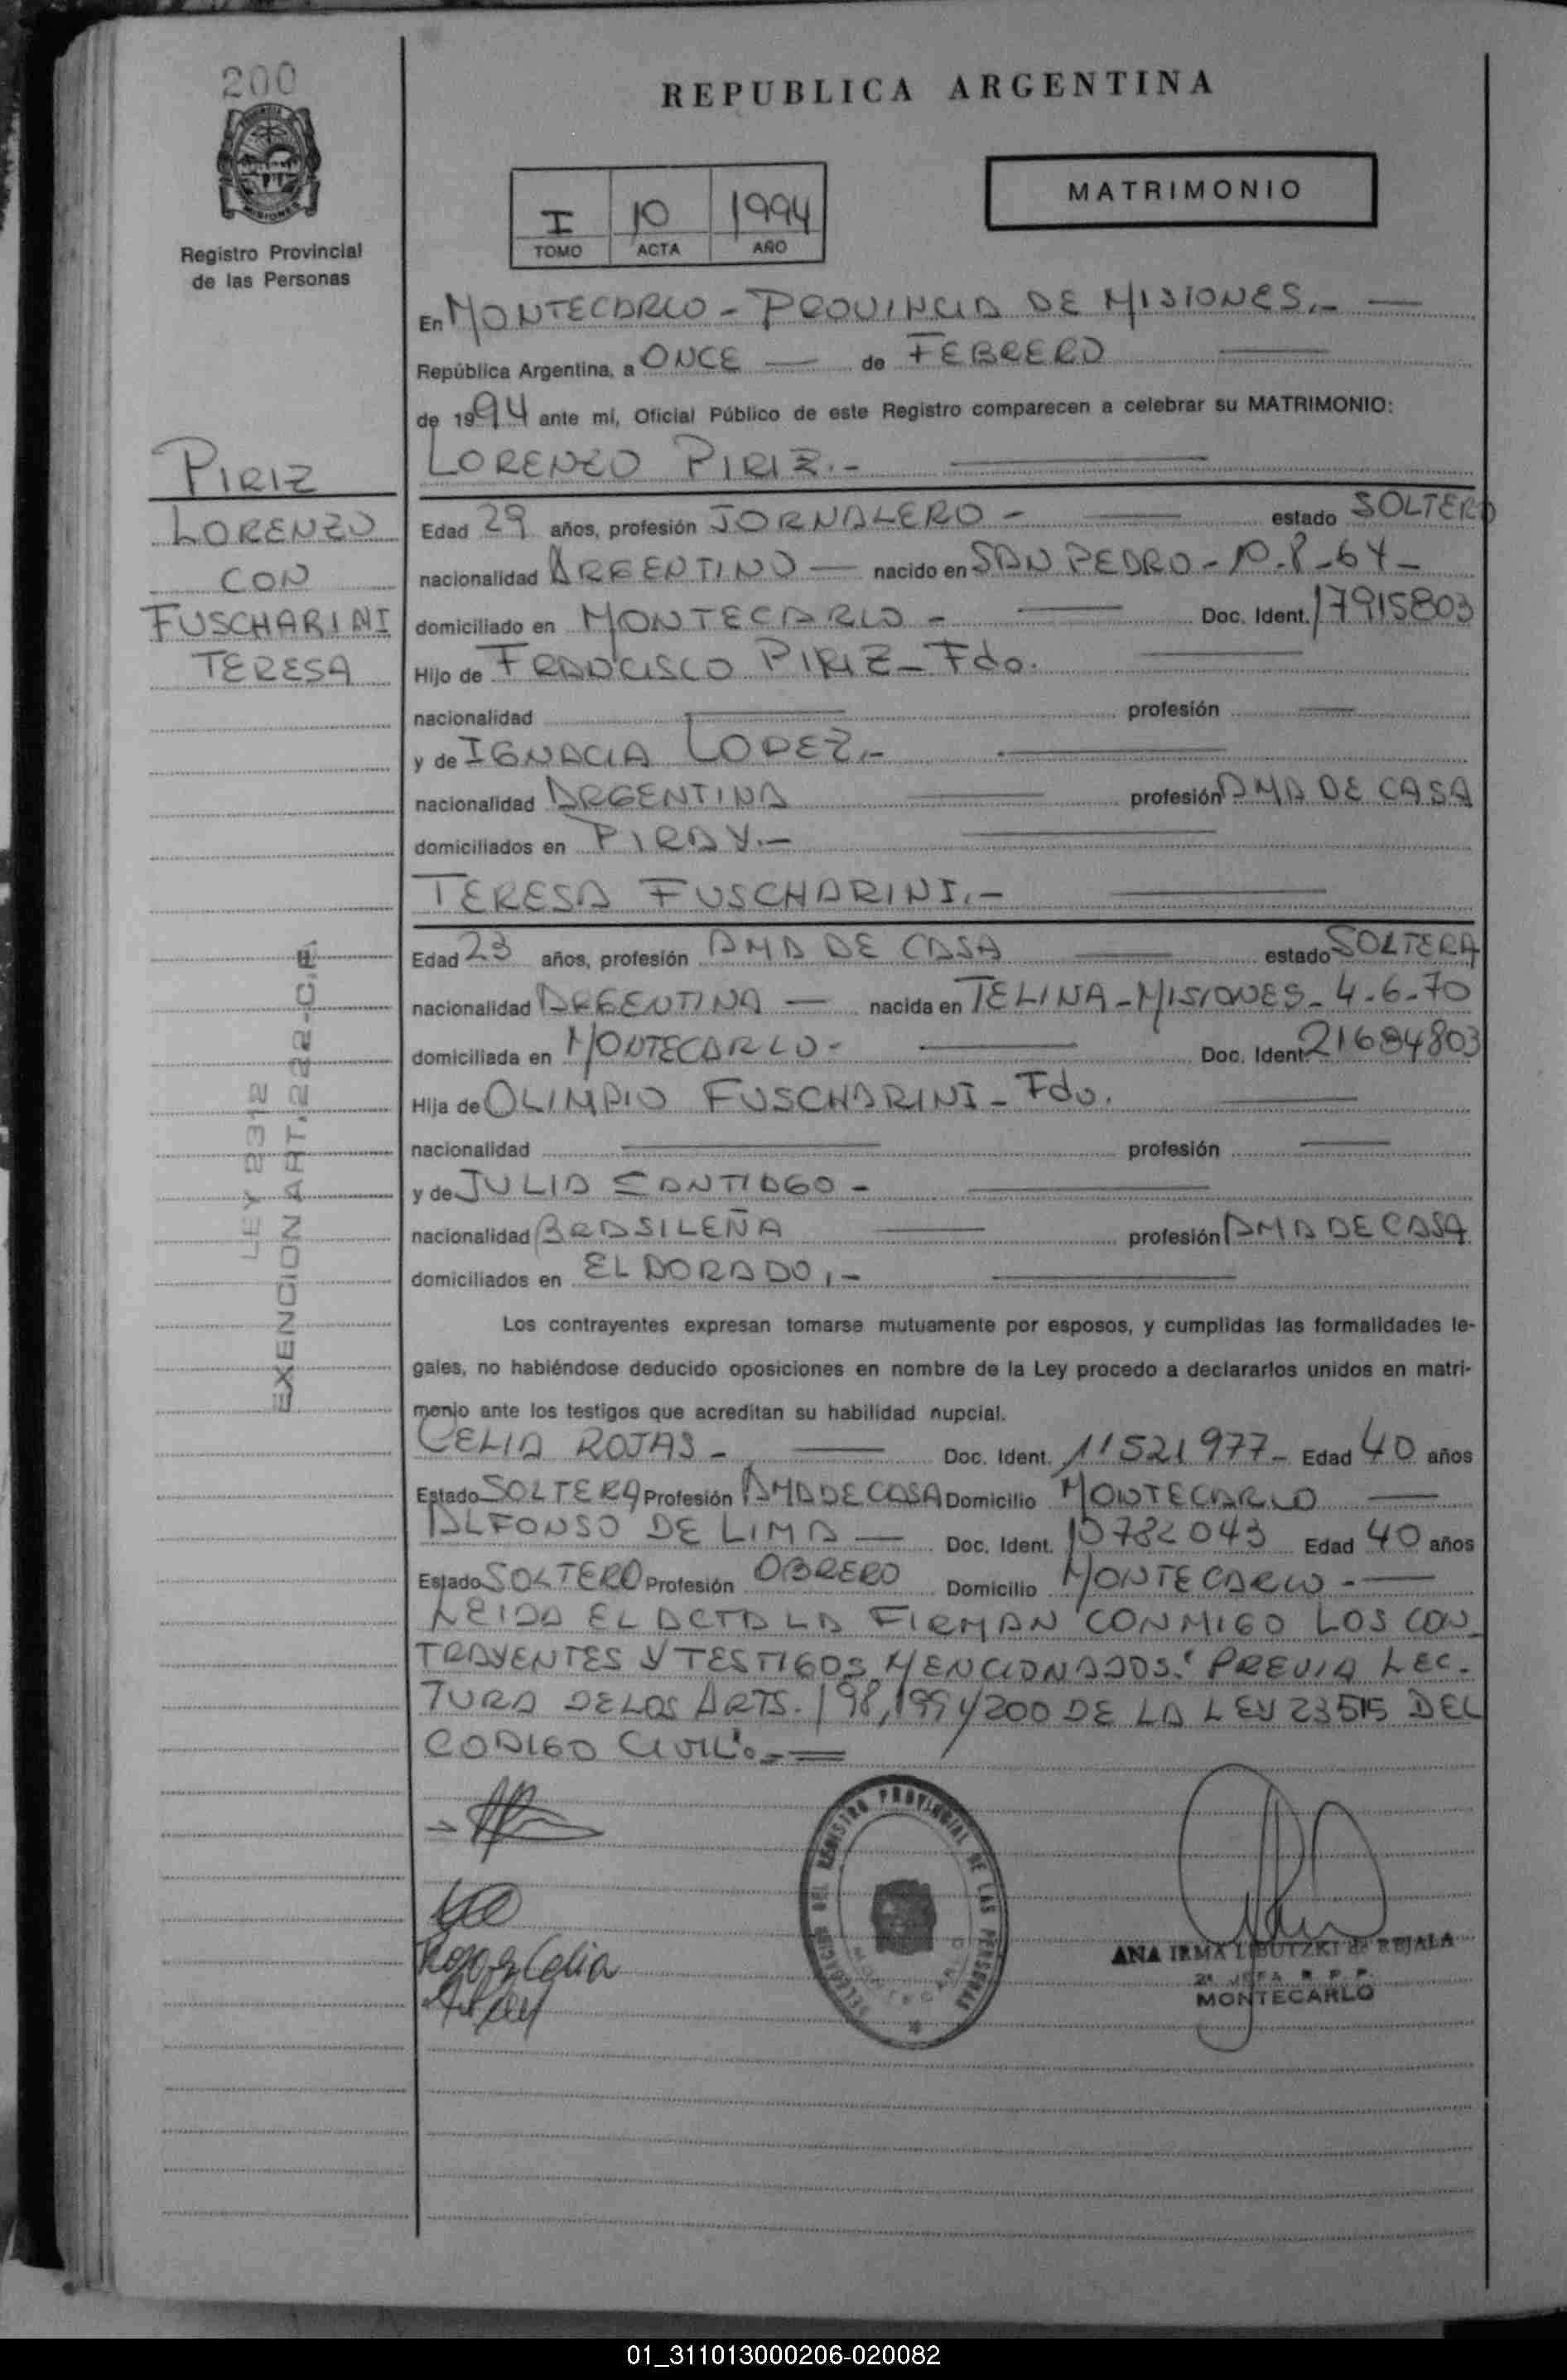 200
REPUBLICA ARGENTINA
MISIONES
Registro Provincial
de las Personas
I 10 1994
TOMO ACTA AÑO
MATRIMONIO
En MONTECARLO - PROVINCIA DE MISIONES.-
República Argentina, a ONCE de FEBRERO
de 1994 ante mí, Oficial Público de este Registro comparecen a celebrar su MATRIMONIO:
LORENZO PIRIZ.-
PIRIZ
LORENZO
CON
FUSCHARINI
TERESA
Edad 29 años, profesión JORNALERO - estado SOLTERO
nacionalidad ARGENTINO nacido en SAN PEDRO - 10-8-64-
domiciliado en MONTECARLO - Doc. Ident. 17915803
Hijo de FRANCISCO PIRIZ - Fdo.
nacionalidad profesión
y de IGNACIA LOPEZ.-
nacionalidad ARGENTINA profesión AMA DE CASA
domiciliados en PIRAY.-
TERESA FUSCHARINI.-
Edad 23 años, profesión AMA DE CASA estado SOLTERA
nacionalidad ARGENTINA nacida en TELINA - MISIONES - 4-6-70
domiciliada en MONTECARLO - Doc. Ident. 21684803
Hija de OLIMPIO FUSCHARINI - Fdo.
nacionalidad profesión
y de JULIA SANTIAGO -
nacionalidad BRASILEÑA profesión AMA DE CASA
domiciliados en ELDORADO,-
LEY 2312
EXENCION ART. 222-C.F.
Los contrayentes expresan tomarse mutuamente por esposos, y cumplidas las formalidades le-
gales, no habiéndose deducido oposiciones en nombre de la Ley procedo a declararlos unidos en matri-
monio ante los testigos que acreditan su habilidad nupcial.
CELIA ROJAS - Doc. Ident. 11521977- Edad 40 años
Estado SOLTERA Profesión AMA DE CASA Domicilio MONTECARLO
ALFONSO DE LIMA Doc. Ident. 10782043 Edad 40 años
Estado SOLTERO Profesión OBRERO Domicilio MONTECARLO -
LEIDA EL ACTA LA FIRMAN CONMIGO LOS CON-
TRAYENTES Y TESTIGOS MENCIONADOS." PREVIA LEC-
TURA DE LOS ARTS. 198, 199 y 200 DE LA LEY 23515 DEL
CODIGO CIVIL".-
DELEGACION DEL REGISTRO PROVINCIAL DE LAS PERSONAS
MONTECARLO
Rojas Celia
ANA IRMA LIBUTZKI de REJALA
2ª JEFA R. P. P.
MONTECARLO
01_311013000206-020082